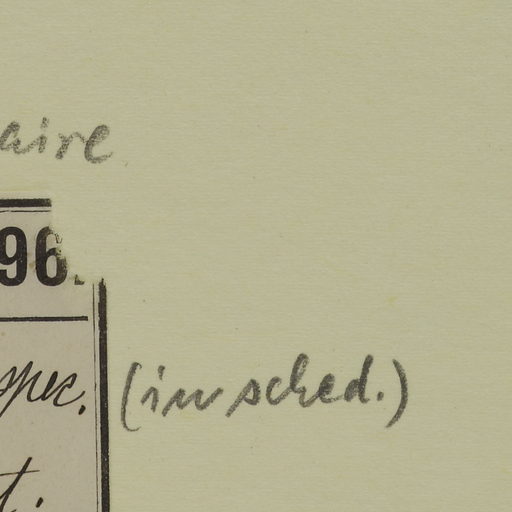 aire
96.
spec. (in sched.)
ti.